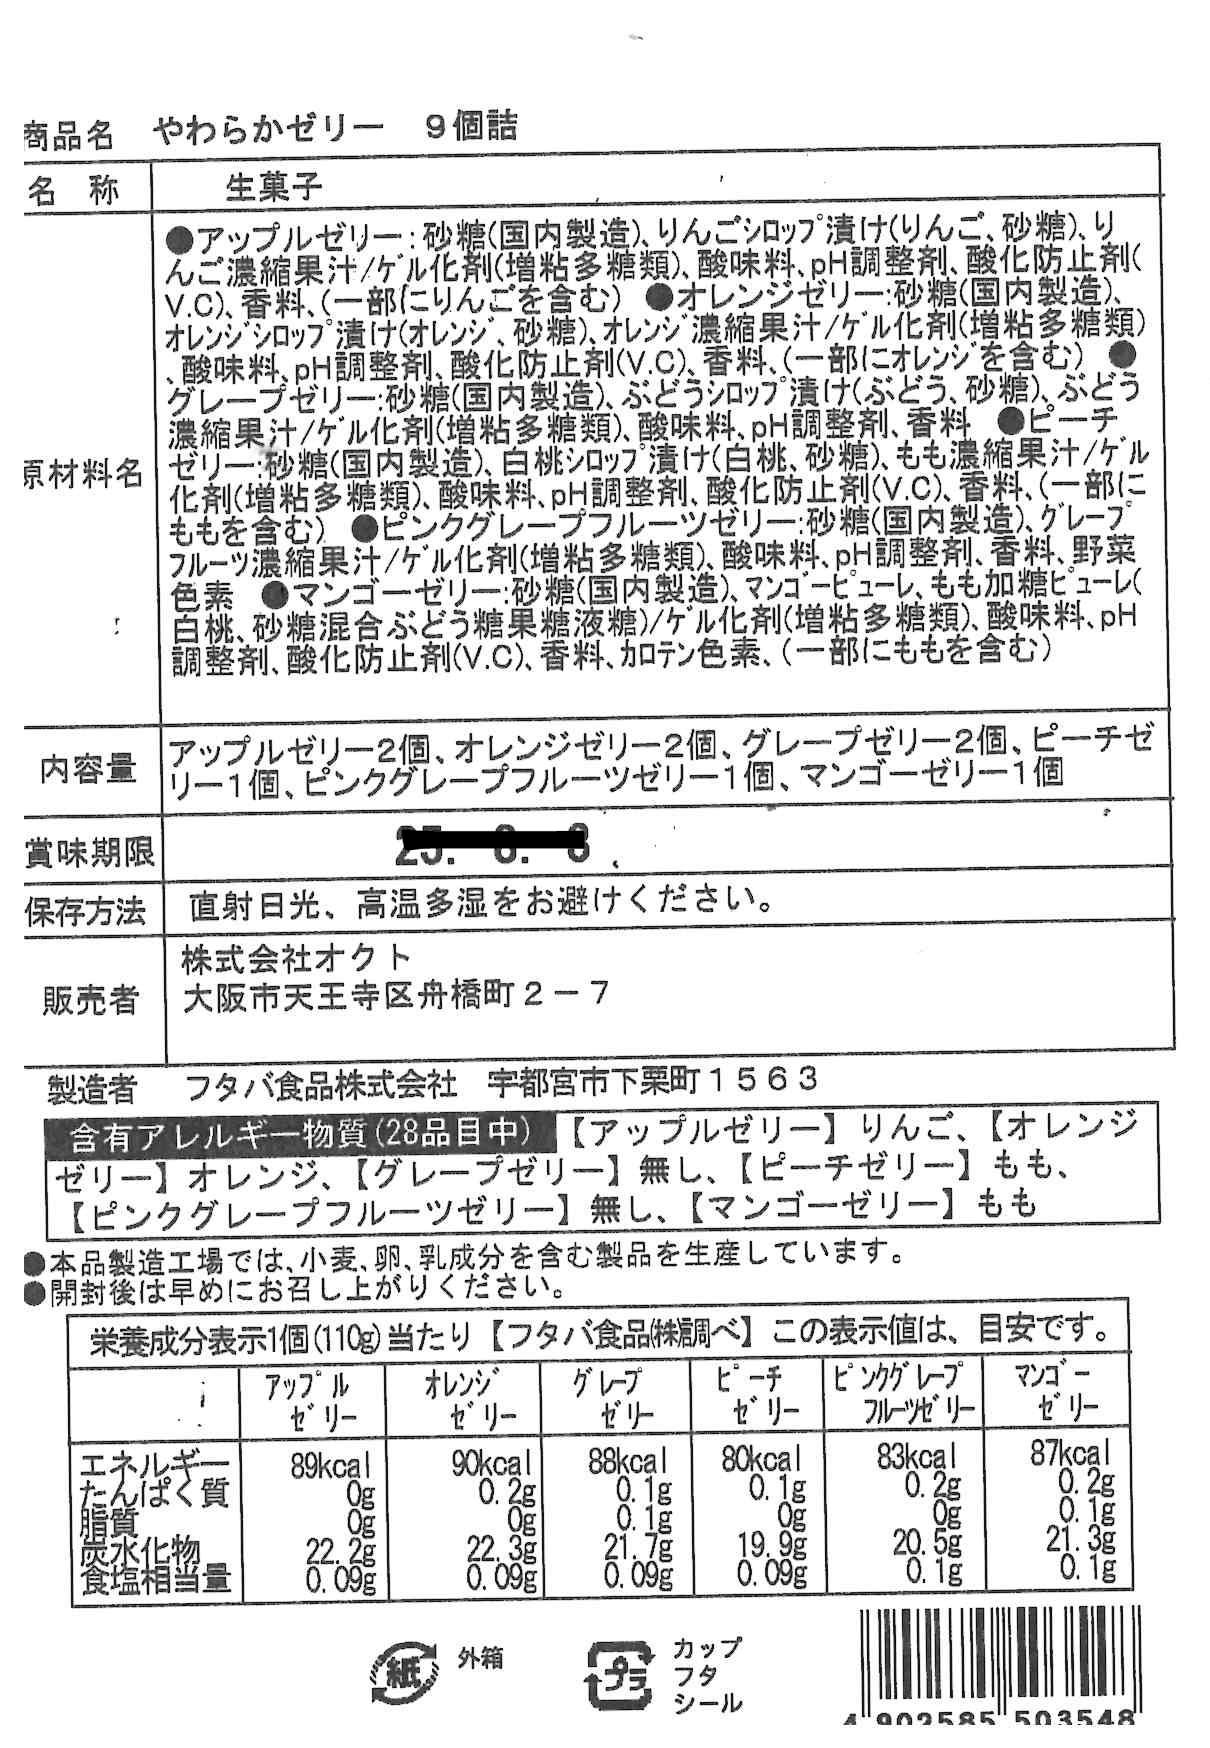 商品名 やわらかゼリー 9個詰
名 称 生菓子
原材料名
●アップルゼリー:砂糖(国内製造)、りんごシロップ漬け(りんご、砂糖)、り
んご濃縮果汁/ゲル化剤(増粘多糖類)、酸味料、pH調整剤、酸化防止剤(
V.C)、香料、(一部にりんごを含む) ●オレンジゼリー:砂糖(国内製造)、
オレンジシロップ漬け(オレンジ、砂糖)、オレンジ濃縮果汁/ゲル化剤(増粘多糖類)
、酸味料、pH調整剤、酸化防止剤(V.C)、香料、(一部にオレンジを含む) ●
グレープゼリー:砂糖(国内製造)、ぶどうシロップ漬け(ぶどう、砂糖)、ぶどう
濃縮果汁/ゲル化剤(増粘多糖類)、酸味料、pH調整剤、香料 ●ピーチ
ゼリー:砂糖(国内製造)、白桃シロップ漬け(白桃、砂糖)、もも濃縮果汁/ゲル
化剤(増粘多糖類)、酸味料、pH調整剤、酸化防止剤(V.C)、香料、(一部に
ももを含む) ●ピンクグレープフルーツゼリー:砂糖(国内製造)、グレープ
フルーツ濃縮果汁/ゲル化剤(増粘多糖類)、酸味料、pH調整剤、香料、野菜
色素 ●マンゴーゼリー:砂糖(国内製造)、マンゴーピューレ、もも加糖ピューレ(
白桃、砂糖混合ぶどう糖果糖液糖)/ゲル化剤(増粘多糖類)、酸味料、pH
調整剤、酸化防止剤(V.C)、香料、カロテン色素、(一部にももを含む)
内容量
アップルゼリー2個、オレンジゼリー2個、グレープゼリー2個、ピーチゼ
リー1個、ピンクグレープフルーツゼリー1個、マンゴーゼリー1個
賞味期限
保存方法 直射日光、高温多湿をお避けください。
販売者
株式会社オクト
大阪市天王寺区舟橋町2-7
製造者 フタバ食品株式会社 宇都宮市下栗町1563
含有アレルギー物質(28品目中) 【アップルゼリー】りんご、【オレンジ
ゼリー】オレンジ、【グレープゼリー】無し、【ピーチゼリー】もも、
【ピンクグレープフルーツゼリー】無し、【マンゴーゼリー】もも
●本品製造工場では、小麦、卵、乳成分を含む製品を生産しています。
●開封後は早めにお召し上がりください。
栄養成分表示1個(110g)当たり【フタバ食品(株)調べ】この表示値は、目安です。
アップル オレンジ グレープ ピーチ ピンクグレープ マンゴー
ゼリー ゼリー ゼリー ゼリー フルーツゼリー ゼリー
エネルギー 89kcal 90kcal 88kcal 80kcal 83kcal 87kcal
たんぱく質 0g 0.2g 0.1g 0.1g 0.2g 0.2g
脂質 0g 0g 0.1g 0g 0g 0.1g
炭水化物 22.2g 22.3g 21.7g 19.9g 20.5g 21.3g
食塩相当量 0.09g 0.09g 0.09g 0.09g 0.1g 0.1g
紙 外箱
プラ カップ
フタ
シール
4 902585 503548